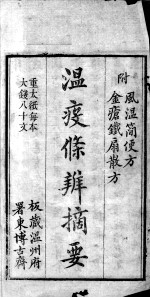 附 風温簡便方
金瘡鐵扇散方
温疫條辨摘要
板藏温州府
署東博古齋
重太紙每本
大錢八十文